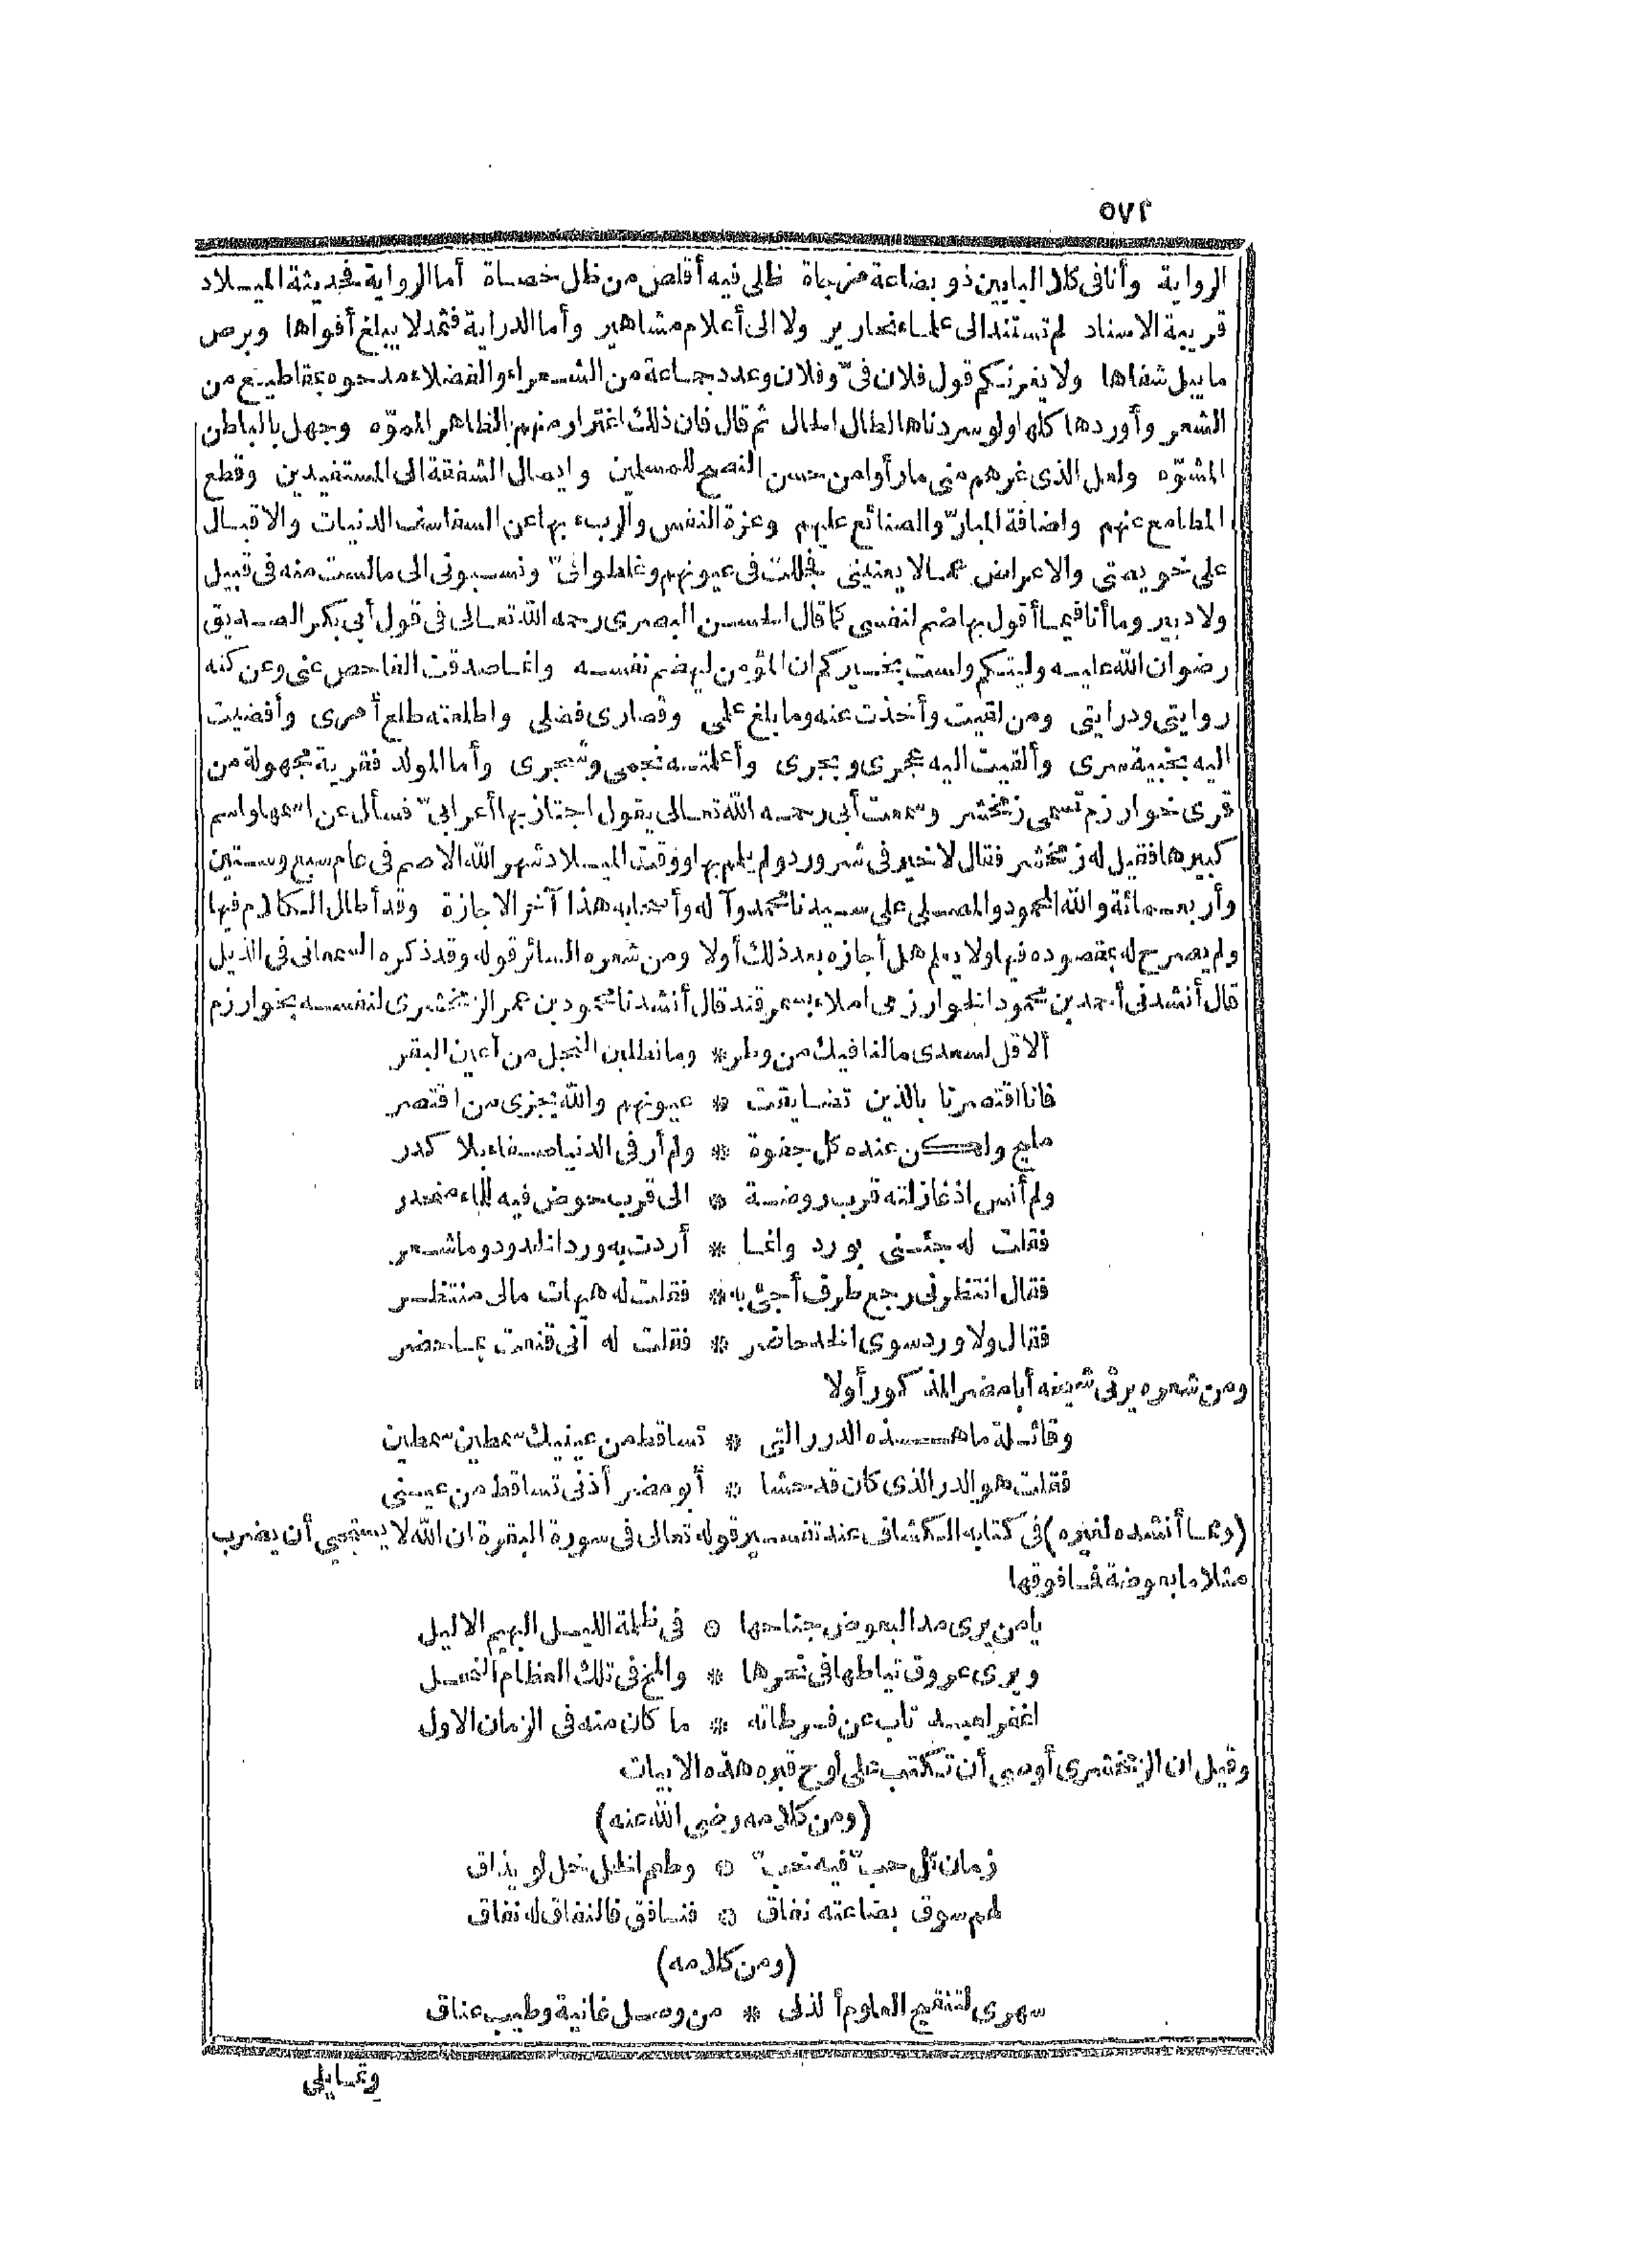 ٥٧٢
الرواية وأنا فى كلا البابين ذو بضاعة مزجاة ظلى فيه أقلص من ظل حصاة أما الرواية فحديثة الميلاد
قريبة الاسناد لم تستند الى علماء نحارير ولا الى أعلام مشاهير وأما الدراية فثمد لا يبلغ أفواها وبرض
ما يبل شفاها ولا يغرنكم قول فلان فىّ وفلان وعدد جماعة من الشعراء والفضلاء مدحوه بمقاطيع من
الشعر وأوردها كلها ولو سردناها لطال الحال ثم قال فان ذلك اغترار منهم بالظاهر المموّه وجهل بالباطن
المشوّه ولعل الذى غرهم منى ما رأوا من حسن النصح للمسلمين وايصال الشفقة الى المستفيدين وقطع
المطامع عنهم واضافة المبارّ والصنائع عليهم وعزة النفس والربء بها عن السفاسف الدنيات والاقبال
على خويصتى والاعراض عما لا يعنينى فجللت فى عيونهم وغلطوا فىّ ونسبونى الى ما لست منه فى قبيل
ولا دبير وما أنا فيما أقول بهاضم لنفسى كما قال الحسن البصرى رحمه الله تعالى فى قول أبى بكر الصديق
رضوان الله عليه وليتكم ولست بخيركم ان المؤمن ليهضم نفسه وانما صدقت الفاحص عنى وعن كنه
روايتى ودرايتى ومن لقيت وأخذت عنه وما بلغ علمى وقصارى فضلى واطلعته طلع أمرى وأفضيت
اليه بخبية سرى وألقيت اليه عجرى وبجرى وأعلمته نجمى وشجرى وأما المولد فقرية مجهولة من
قرى خوارزم تسمى زمخشر وسمعت أبى رحمه الله تعالى يقول اجتاز بها أعرابىّ فسأل عن اسمها واسم
كبيرها فقيل له زمخشر فقال لا خير فى شر ورد ولم يلم بها ووقت الميلاد شهر الله الاصم فى عام سبع وستين
وأربعمائة والله المحمود والمصلى على سيدنا محمد وآله وأصحابه هذا آخر الاجازة وقد أطال الكلام فيها
ولم يصرح له بمقصوده فيها ولا يعلم هل أجازه بعد ذلك أولا ومن شعره السائر قوله وقد ذكره السمعانى فى الذيل
قال أنشدنى أحمد بن محمود الخوارزمى املاء بسمرقند قال أنشدنا محمود بن عمر الزمخشرى لنفسه بخوارزم
ألا قل لسعدى مالنا فيك من وطر * وما نطلبن النجل من أعين البقر
فانا اقتصرنا بالذين تضايقت * عيونهم والله يجزى من اقتصر
مليح ولكن عنده كل جفوة * ولم أر فى الدنيا صفاء بلا كدر
ولم أنس اذ غازلته قرب روضة * الى قرب حوض فيه للماء منحدر
فقلت له جئنى بورد وانما * أردت به ورد الخدود وما شعر
فقال انتظرنى رجع طرف أجئ به * فقلت له هيهات مالى منتظر
فقال ولا ورد سوى الخد حاضر * فقلت له أنى قنعت بما حضر
ومن شعره يرثى شيخه أبا مضر المذكور أولا
وقائلة ما هذه الدرر التى * تساقط من عينيك سمطين سمطين
فقلت هو الدر الذى كان قد حشا * أبو مضر أذنى تساقط من عينى
(ومما أنشده لغيره) فى كتابه الكشاف عند تفسير قوله تعالى فى سورة البقرة ان الله لا يستحيى أن يضرب
مثلا ما بعوضة فما فوقها
يا من يرى مد البعوض جناحها * فى ظلمة الليل البهيم الاليل
ويرى عروق نياطها فى نحرها * والمخ فى تلك العظام النحل
اغفر لعبد تاب عن فرطاته * ما كان منه فى الزمان الاول
وقيل ان الزمخشرى أوصى أن تكتب على لوح قبره هذه الابيات
(ومن كلامه رضى الله عنه)
زمان كل حبّ فيه خبّ * وطعم الخل خل لو يذاق
لهم سوق بضاعته نفاق * فنافق فالنفاق له نفاق
(ومن كلامه)
سهرى لتنقيح العلوم ألذ لى * من وصل غانية وطيب عناق
وتمايلى